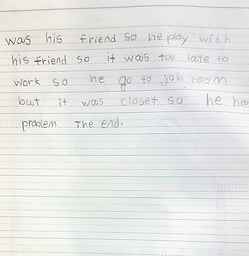 was his friend so he play with
his friend so it was too late to
work so he go to job room
but it was closet so he ha
problem The end.